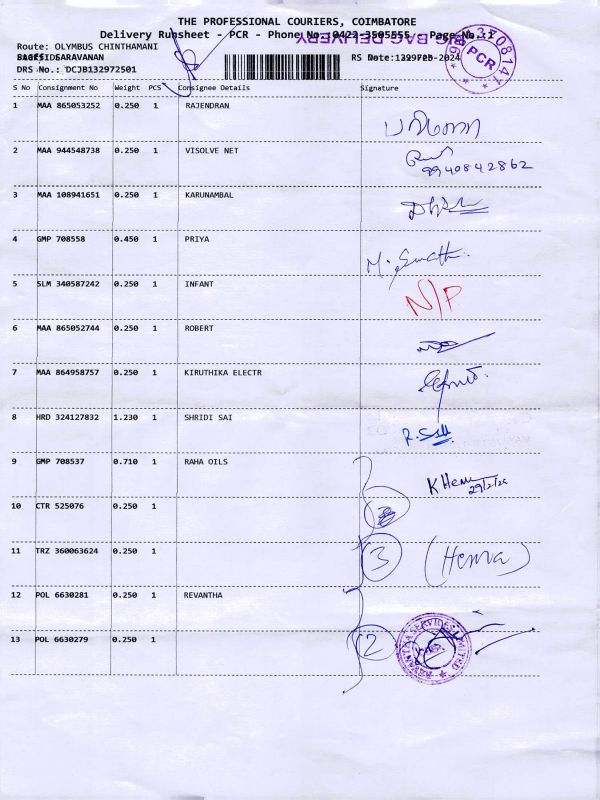 THE PROFESSIONAL COURIERS, COIMBATORE
Delivery Runsheet - PCR - Phone No.:0422-3505555. - Page No.:1
Route: OLYMBUS CHINTHAMANI
SARAVANAN
DRS No.: DCJB132972501
S No Consignment No Weight PCS Consignee Details Signature
1 MAA 865053252 0.250 1 RAJENDRAN
2 MAA 944548738 0.250 1 VISOLVE NET
9940842862
3 MAA 108941651 0.250 1 KARUNAMBAL
4 GMP 708558 0.450 1 PRIYA
M. Swath.
5 SLM 340587242 0.250 1 INFANT N/P
6 MAA 865052744 0.250 1 ROBERT
7 MAA 864958757 0.250 1 KIRUTHIKA ELECTR
8 HRD 324127832 1.230 1 SHRIDI SAI
9 GMP 708537 0.710 1 RAHA OILS
K Hem
29/2/24
10 CTR 525076 0.250 1
11 TRZ 360063624 0.250 1 3 (Hemra)
12 POL 6630281 0.250 1 REVANTHA
13 POL 6630279 0.250 1 2